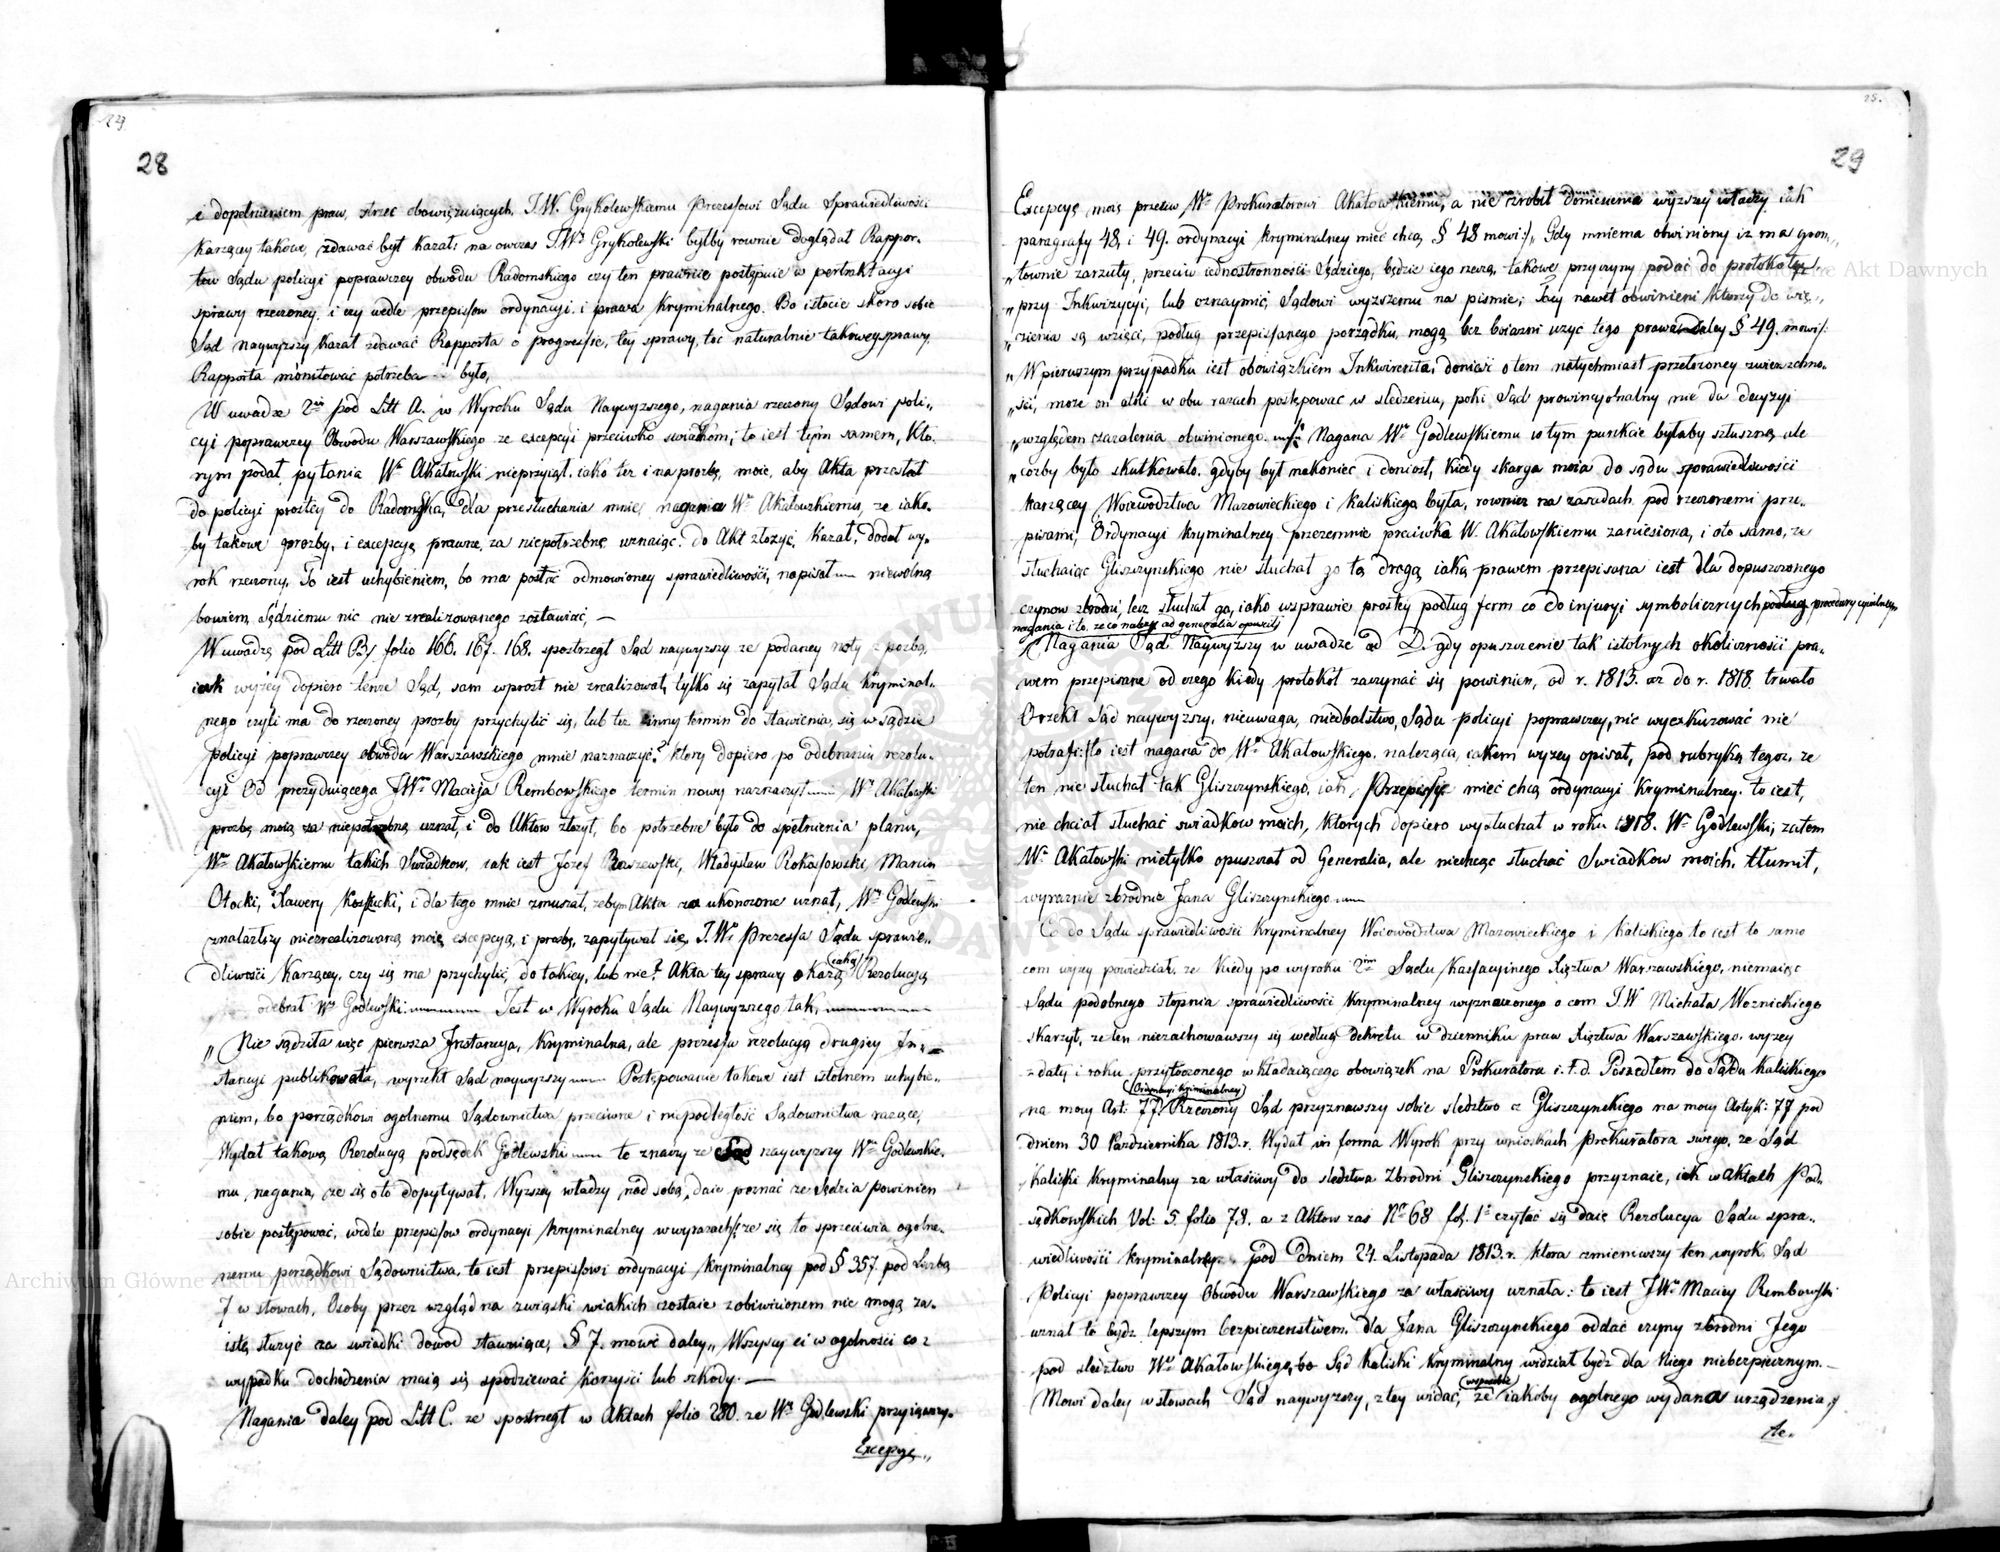 28
i dopełnieniem praw, strzec obowiązuiących, J.W. Grykolewskiemu Prezessowi Sądu Sprawiedliwości
karzącey takowe, zdawać był kazał: na owczas J.Wy Grykolewski byłby rownie doglądał Rappor-
tow Sądu policyi poprawczey obwodu Radomskiego czy ten prawnie postępuie w pertraktacyi
sprawy rzeczoney, i czy wedle przepissow ordynacyi i prawa kryminalnego. Bo istocie skoro sobie
Sąd naywyższy kazał zdawać Rapporta o progressie, tey sprawy, toc naturalnie takowey sprawy
Rapporta monitować potrzeba było,
W uwadze 2ey pod Litt A. w Wyroku Sądu Naywyższego, nagania rzeczony Sądowi poli,,
cyi poprawczey Obwodu Warszawskiego ze excepcyi przeciwko swiadkom, to iest tym samem, kto-
rym podał pytania Wy Akałowski nieprzyiął, iako też i na prozbę, moię, aby Akta przesłał
do policyi prostey do Radomska, dla przesłuchania mnie, nagania Wu Akałowskiemu, ze iako-
by takowe prozby, i excepcyą prawne, za niepotrzebne uznaiąc, do Akt złożyć, kazał, dodał wy-
rok rzeczony, To iest uchybieniem, bo ma postać odmowioney sprawiedliwości, napisał niewolno
bowiem Sędziemu nic nie zrealizowanego zostawiać, —
W uwadze pod Litt B. folio 166. 167. 168. spostrzegł Sąd naywyzszy ze podaney noty z prozbą,
iak wyżey dopiero tenże Sąd, sam wprost nie zrealizował, tylko się zapytał Sądu kryminal-
nego czyli ma do rzeczoney prozby przychylić się, lub też inny termin do stawienia się w sądzie
policyi poprawczey obwodu Warszawskiego mnie naznaczyć? ktory dopiero po odebraniu rezolu-
cyi Od prezyduiącego JWo Macieja Rembowskiego termin nowy naznaczył Wy Akałowski
prozbę moią za niepotrzebną uznał, i do Aktow złożył, bo potrzebne było do spełnienia planu,
Wu Akałowskiemu takich Swiadkow, iak iest Jozef Raszewski, Władysław Rokassowski, Marcin
Otocki, Xawery Kossucki, i dla tego mnie zmuszał, zebym Akta za ukonczone uznał, Wy Godlewski
znalazłszy niezrealizowaną moię excepcyą, i prozbę, zapytywał się, J.Wo Prezessa Sądu sprawie,,
dliwości karzącey, czy się ma przychylić, do takiey, lub nie? Akta tey sprawy okażą iaką Rezolucyą
odebrał Wy Godlewski. Jest w Wyroku Sądu Naywyższego tak,
,, Nie sądziła więc pierwsza Instancya, kryminalna, ale prezessa rezolucyą drugiey In,,
stancyi publikowała, wyrzekł Sąd naywyzszy Postępowanie takowe iest istotnem uchybie,,
niem, bo porządkowi ogolnemu Sądownictwa przeciwne i niepodległość Sądownictwa rażące,
Wydał takową Rezolucyą podsędek Godlewski to znaczy ze Sąd naywyzszy Wu Godlewskie,
mu nagania, ze się oto dopytywał, Wyzszey władzy nad sobą, daie poznać ze Sędzia powinien
sobie postępować, wedle przepissow ordynacyi kryminalney w wyrazach/: ze się to sprzeciwia ogolne-
nemu porządkowi Sądownictwa, to iest przepissowi ordynacyi kryminalney pod § 357. pod Liczbą
7 w słowach, Osoby przez wzgląd na związki wiakich zostaie z obwinionem nie mogą za-
istę słuzyć za swiadki dowod stawiaiące, § 7. mowi daley,, Wszyscy ci w ogolności co z
wypadku dochodzenia maią się spodziewać korzyści lub szkody. —
Nagania daley pod Litt C. ze spostrzegł w Aktach folio 280. ze Wy Godlewski przyiąwszy-
Excepcyą,,
25.
29
Excepcyą moią przeciw Wu Prokuratorowi Akałowskiemu, a nie zrobił doniesienia wyzszey władzy iak
paragrafy 48, i 49. ordynacyi kryminalney mieć chcą § 48 mowi:/,, Gdy mniema obwiniony iz ma grun,,
,,townie zarzuty, przeciw iednostronności Sędziego, będzie iego rzeczą, takowe przyczyny podać do protokołu
,,przy Inkwizycyi, lub oznaymić, Sądowi wyzszemu na pismie, tacy nawet obwinieni ktorzy do wię,,
,,zienia są wzięci, podług przepissanego porządku, mogą bez boiazni uzyć tego prawa. Daley § 49. mowi/:
,,W pierwszym przypadku iest obowiązkiem Inkwirenta, donieść o tem natychmiast przełozoney zwierzchno-
,,ści, moze on atoli w obu razach postępować w śledzeniu, poki Sąd prowincyonalny nie da decyzyi
,,względem zazalenia obwinionego. Nagana Wu Godlewskiemu w tym punkcie byłaby słuszną ale
,,cożby było skutkowało, gdyby był nakoniec i doniosł, kiedy skarga moia do sądu sprawiedliwości
karzącey Woiewodztwa Mazowieckiego i Kaliskiego była, rownież na zasadach pod rzeczonemi prze-
pisami, Ordynacyi kryminalney przezemnie przeciwko W. Akałowskiemu zaniesiona, i oto samo, ze
słuchaiąc Gliszczynskiego nie słuchał go tą drogą iaką prawem przepisana iest dla dopuszczonego
czynow zbrodni, lecz słuchał go, iako w sprawie prostey podług form co do iniuryi symbolicznych podług procedury cywilney
nagania i to, ze co należy ad generalia opuścił
Nagania Sąd Naywyższy w uwadze ad D. gdy opuszczenie tak istotnych okoliczności pra-
wem przepisane od czego kiedy protokoł zaczynać się powinien, od r. 1813. az do r. 1818. trwało
Orzekł Sąd naywyzszy, nieuwaga, niedbalstwo, Sądu policyi poprawczey, nic wyexkuzować nie
potrafi:/to iest nagana do Wo Akałowskiego, naleząca, iakem wyzey opisał, pod rubryką tegoz, ze
ten nie słuchał tak Gliszczynskiego, iak Przepissy mieć chcą ordynacyi kryminalney, to iest,
nie chciał słuchać swiadkow moich, ktorych dopiero wysłuchał w roku 1818. Wy Godlewski; zatem
Wy Akałowski nietylko opuszczał od Generalia, ale niechcąc słuchać Swiadkow moich, tłumił,
wyraznie zbrodnie Jana Gliszczynskiego
Co do Sądu sprawiedliwości kryminalney Woiewodztwa Mazowieckiego i Kaliskiego to iest to samo
com wyzy powiedział, ze kiedy po wyroku 2im Sądu kassacyinego Xięztwa Warszawskiego, niemaiąc
Sądu podobnego stopnia sprawiedliwości kryminalney wyznaczonego o com J.W Michała Woznickiego
skarzył, ze ten niezachowawszy się według dekretu w dzienniku praw Xięztwa Warszawskiego, wyzey
z daty i roku przytoczonego wkładaiącego obowiązek na Prokuratora i.t.d. Poszedłem do Sądu kaliskiego
na mocy Art: 77. Ordynacyi kryminalney Rzeczony Sąd przyznawszy sobie sledztwo z Gliszczynskiego na mocy Artyk: 77 pod
dniem 30 Pazdziernika 1813.r. Wydał in forma Wyrok przy wnioskach Prokuratora swego, ze Sąd
kaliski kryminalny za właściwy do sledztwa Zbrodni Gliszczynskiego przyznaie, iak w aktach Pod-
sądkowskich Vol: 5. folio 78. a z Aktow zas No 68 fol. 1o czytać się daie Rezolucya Sądu spra,,
wiedliwości kryminalney pod Dniem 24. Listopada 1813.r. ktora zmieniwszy ten wyrok Sąd
Policyi poprawczey Obwodu Warszawskiego za właściwy uznała: to iest JWy Maciey Rembowski
uznał to bydz lepszym bezpieczenstwem, dla Jana Gliszczynskiego oddać czyny zbrodni Jego
pod sledztwo Wo Akałowskiego, bo Sąd Kaliski kryminalny widział bydz dla niego niebezpiecznym. —
Mowi daley w słowach Sąd naywyzszy, z tey widać, ze wspomni iakoby ogolnego wydana urządzenia,,